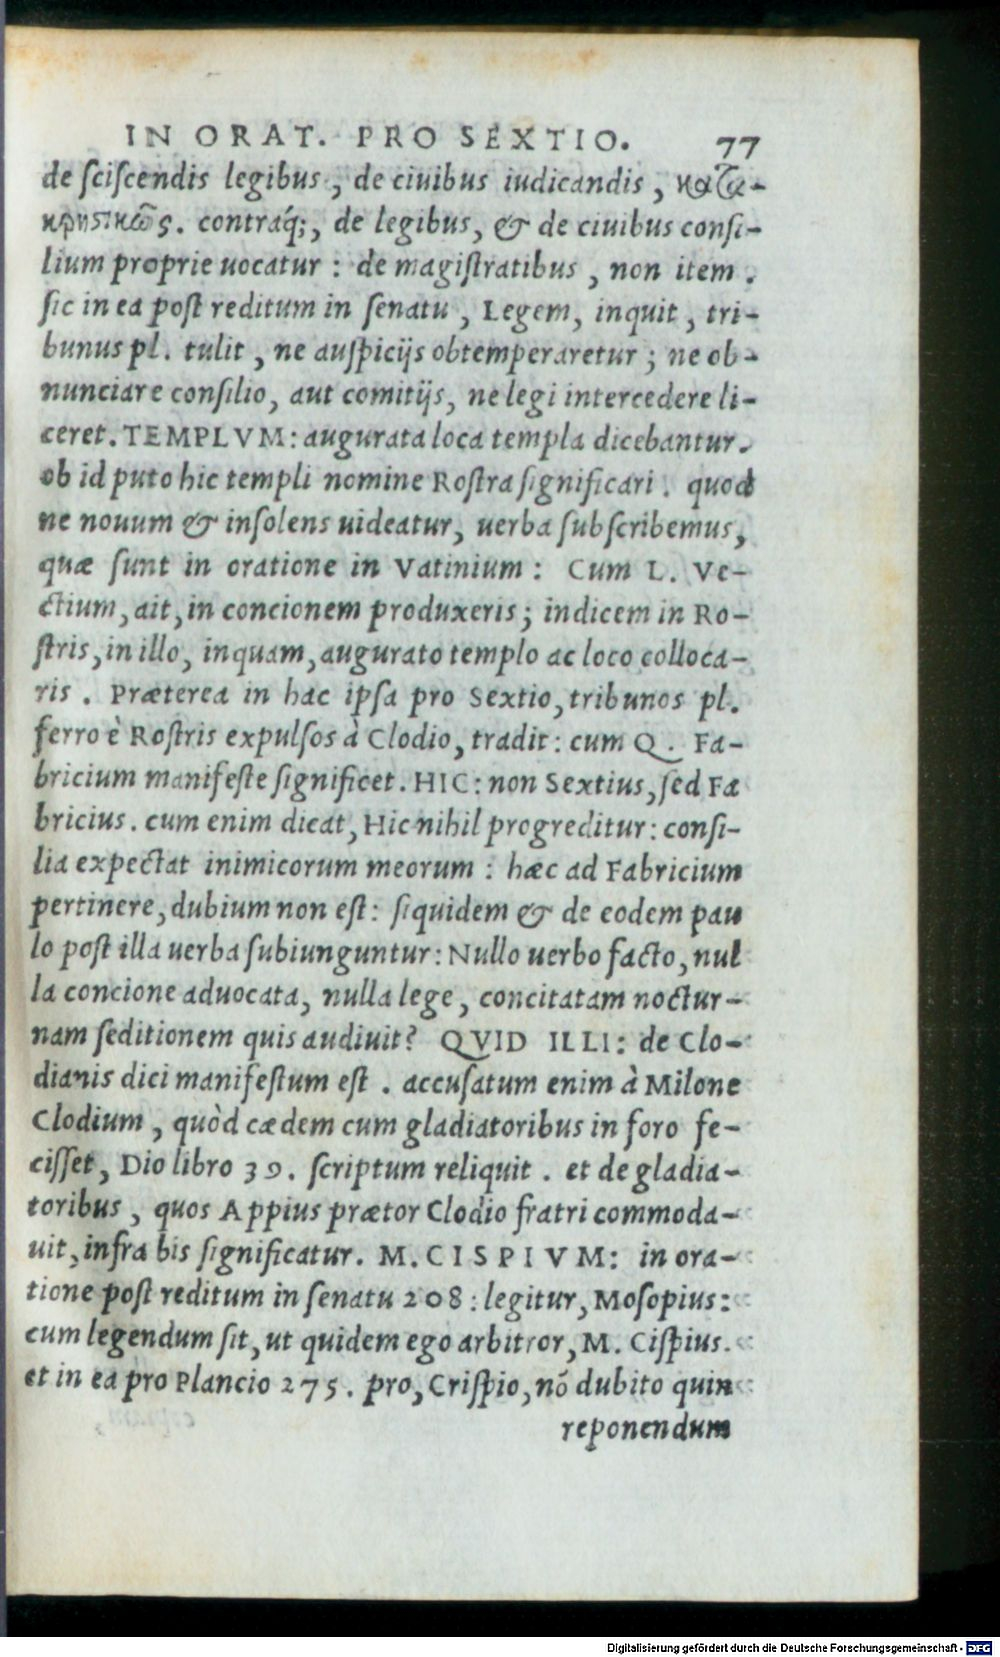 IN ORAT. PRO SEXTIO. 77
de sciscendis legibus, de ciuibus iudicandis, κατα-
χρηστικῶς. contraq́;, de legibus, & de ciuibus consi-
lium proprie uocatur: de magistratibus, non item.
sic in ea post reditum in senatu, Legem, inquit, tri-
bunus pl. tulit, ne auspicijs obtemperaretur; ne ob-
nunciare consilio, aut comitijs, ne legi intercedere li-
ceret. TEMPLVM: augurata loca templa dicebantur.
ob id puto hic templi nomine Rostra significari. quod
ne nouum & insolens uideatur, uerba subscribemus,
quæ sunt in oratione in Vatinium: Cum L. Ve-
ctium, ait, in concionem produxeris; indicem in Ro-
stris, in illo, inquam, augurato templo ac loco colloca-
ris. Præterea in hac ipsa pro Sextio, tribunos pl.
ferro è Rostris expulsos à Clodio, tradit: cum Q. Fa-
bricium manifeste significet. HIC: non Sextius, sed Fa
bricius. cum enim dicat, Hic nihil progreditur: consi-
lia expectat inimicorum meorum: hæc ad Fabricium
pertinere, dubium non est: siquidem & de eodem pau
lo post illa uerba subiunguntur: Nullo uerbo facto, nul
la concione aduocata, nulla lege, concitatam noctur-
nam seditionem quis audiuit? QVID ILLI: de Clo-
dianis dici manifestum est. accusatum enim à Milone
Clodium, quòd cædem cum gladiatoribus in foro fe-
cisset, Dio libro 39. scriptum reliquit. et de gladia-
toribus, quos Appius prætor Clodio fratri commoda-
uit, infra bis significatur. M. CISPIVM: in ora-
tione post reditum in senatu 208: legitur, Mosopius:
cum legendum sit, ut quidem ego arbitror, M. Cispius.
et in ea pro Plancio 275. pro, Crispio, nō dubito quin
reponendum
Digitalisierung gefördert durch die Deutsche Forschungsgemeinschaft - DFG